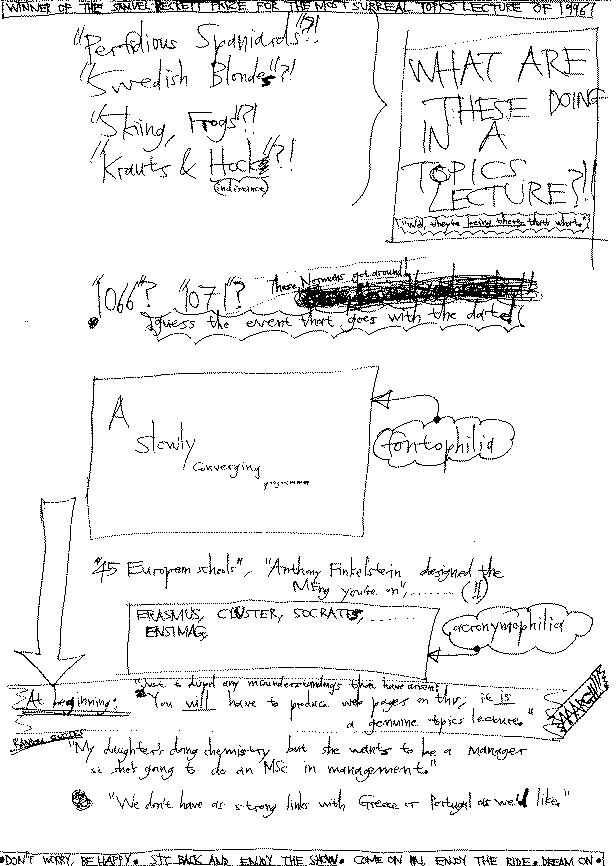 WINNER OF THE SAMUEL BECKETT PRIZE FOR THE MOST SURREAL TOPICS LECTURE OF 1996!
"Perfidious Spaniards"?!
"Swedish Blondes"?!
"Skiing, Frogs"?!
"Krauts & Hock"?!
WHAT ARE
THESE DOING
IN A
TOPICS
LECTURE?!!
"Well, they're
"1066"? "1071"?
These Normans get around
guess the event that goes with the date!
A
slowly
converging
programme
fontophilia
"45 European schools", "Anthony Finkelstein designed the
MEng you're on", ....... (!!)
ERASMUS, CLUSTER, SOCRATES, .......
ENSIMAG,
acronymophilia
any misunderstandings that have arisen:
At beginning:
"You will have to produce web pages on this, it is
a genuine topics lecture."
AAARGH!!!
RANDOM QUOTES
"My daughter's doing chemistry but she wants to be a manager
so she's going to do an MSc in management."
"We don't have as strong links with Greece or Portugal as we'd like."
•DON'T WORRY, BE HAPPY• SIT BACK AND ENJOY THE SHOW• COME ON IN, ENJOY THE RIDE• DREAM ON•